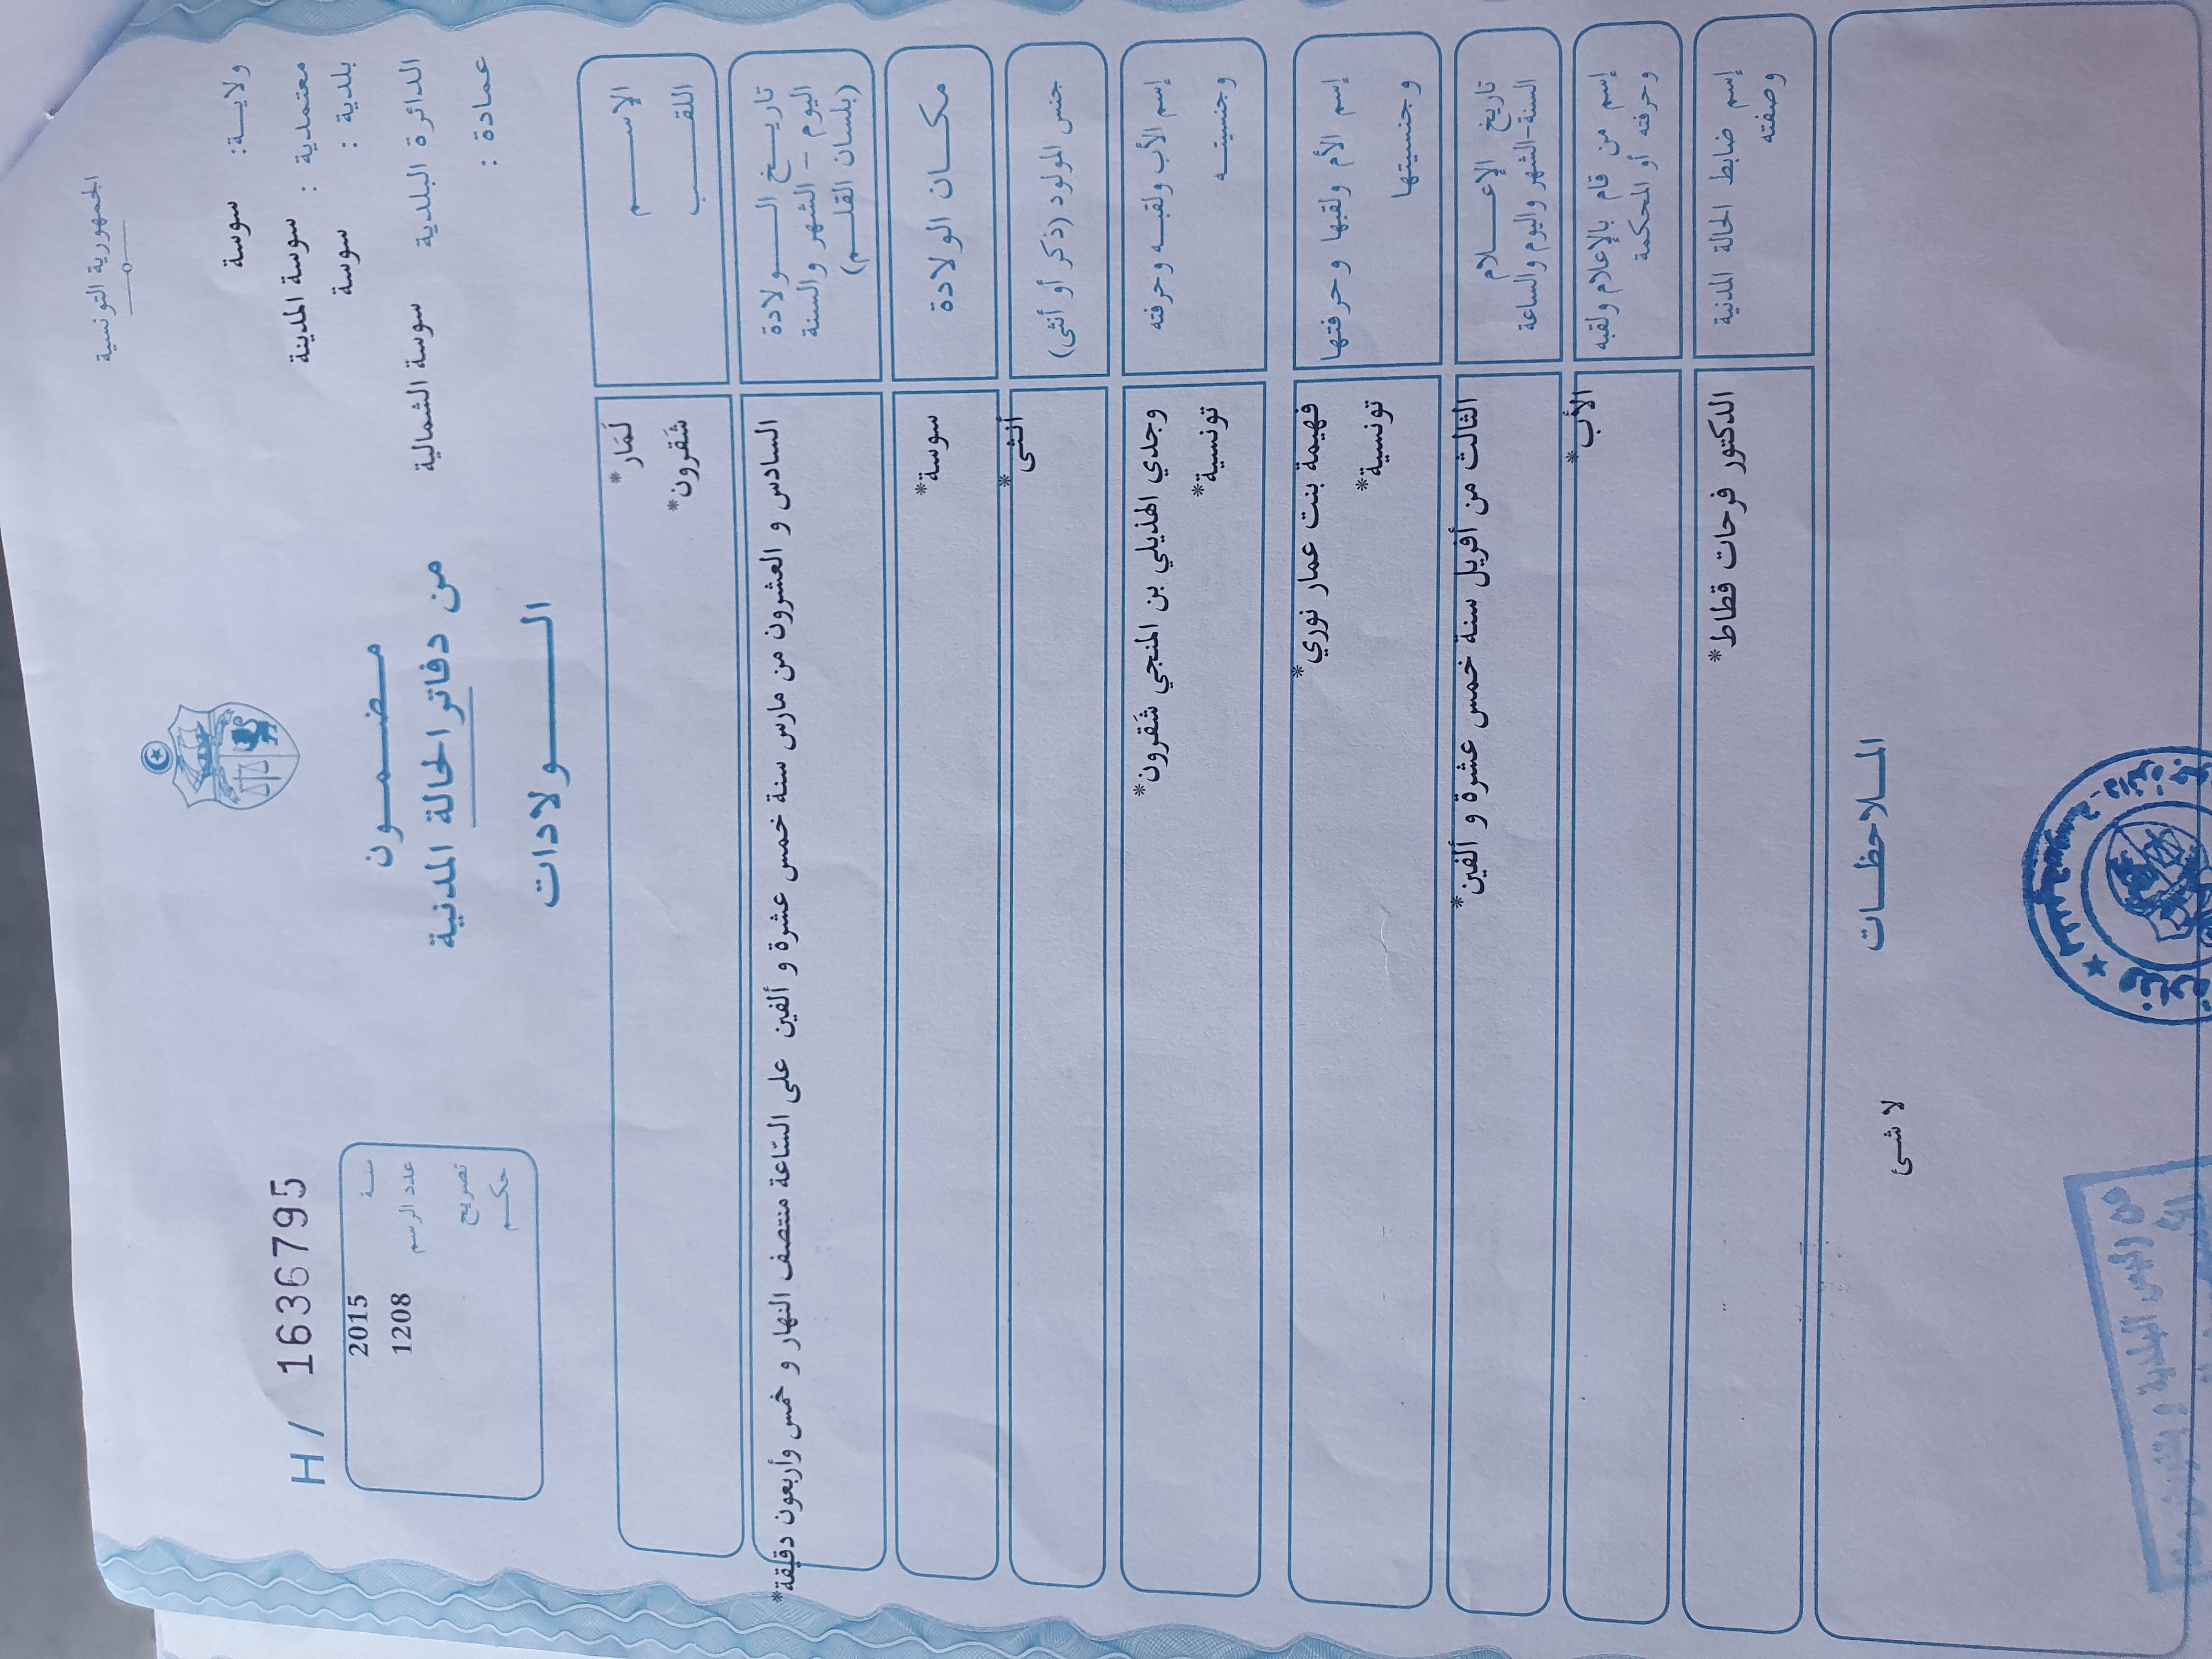 الجمهورية التونسية
ولايـــة: سوسة
معتمدية : سوسة المدينة
بلدية : سوسة
الدائرة البلدية سوسة الشمالية
عمادة :
H/ 1636795
سنة 2015
عدد الرسم 1208
تصريح
حكم
مضمون
من دفاتر الحالة المدنية
الولادات
الإسم لَمَار*
اللقب شَقرون*
تاريخ الولادة
اليوم - الشهر والسنة
(بلسان القلم)
السادس و العشرون من مارس سنة خمس عشرة و ألفين على السّاعة منتصف النهار و خمس وأربعون دقيقة*
مكان الولادة سوسة*
جنس المولود (ذكر أو أنثى) أنثى*
إسم الأب ولقبه وحرفته وجدي الهذيلي بن المنجي شَقرون*
وجنسيته تونسية*
إسم الأم ولقبها وحرفتها فهيمة بنت عمار نوري*
وجنسيتها تونسية*
تاريخ الإعلام
السنة-الشهر واليوم والساعة
الثالث من أفريل سنة خمس عشرة و ألفين*
إسم من قام بالإعلام ولقبه الأب*
وحرفته أو المحكمة
إسم ضابط الحالة المدنية الدكتور فرحات قطاط*
وصفته
الملاحظات
لا شئ